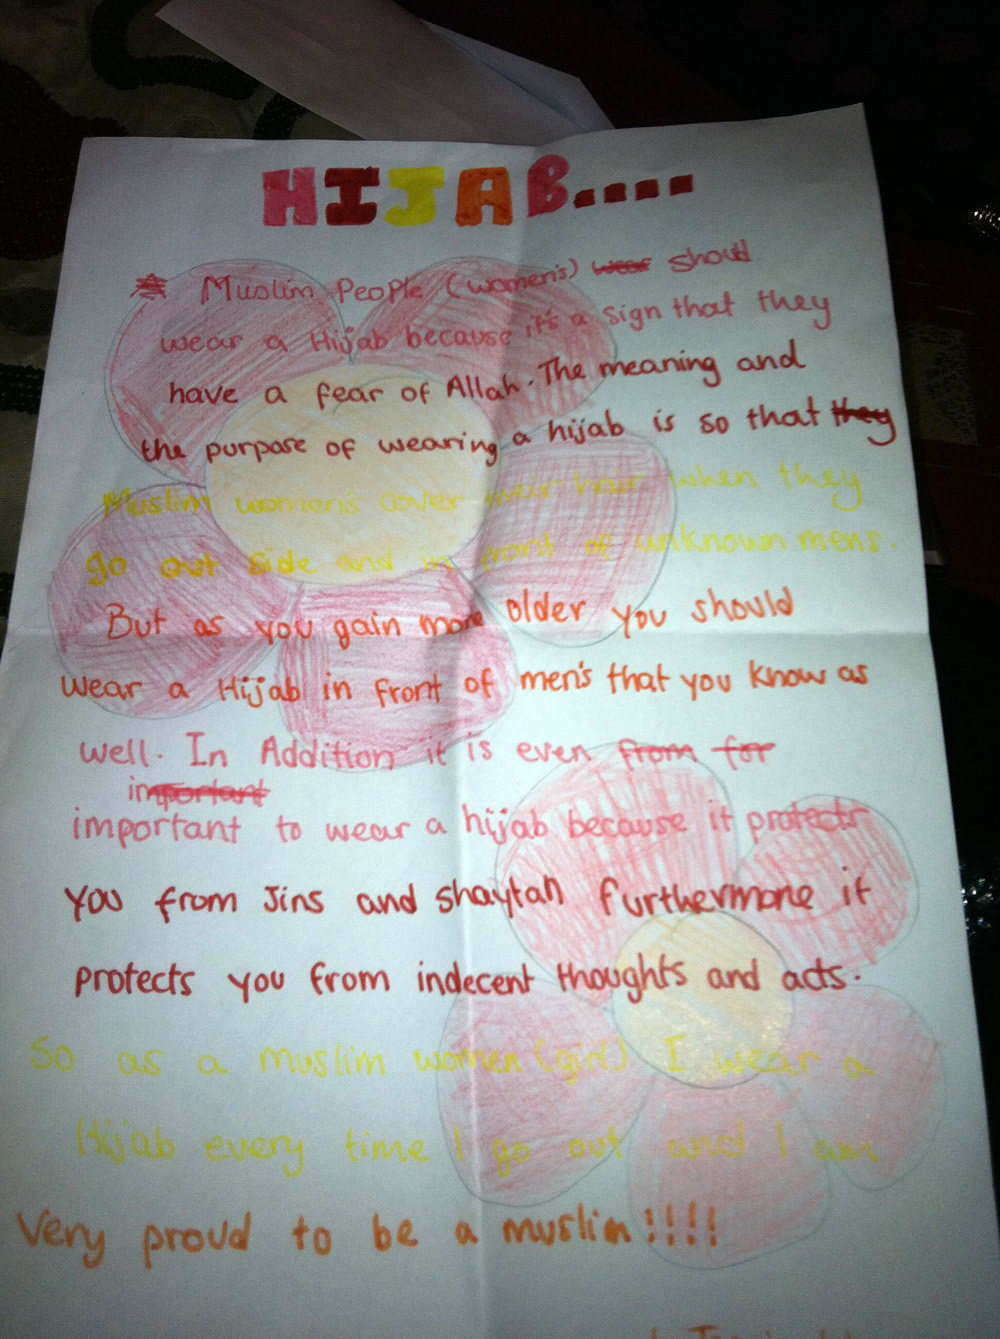 HIJAB....
Muslim People (women's) wear should
wear a Hijab because it's a sign that they
have a fear of Allah. The meaning and
the purpose of wearing a hijab is so that they
Muslim women's cover their hair when they
go out side and in front of unknown mens.
But as you gain more older you should
wear a Hijab in front of men's that you know as
well. In Addition it is even from for
important
important to wear a hijab because it protects
you from Jins and shaytan furthermore it
protects you from indecent thoughts and acts.
So as a muslim women (girl) I wear a
Hijab every time I go out and I am
very proud to be a muslim!!!!